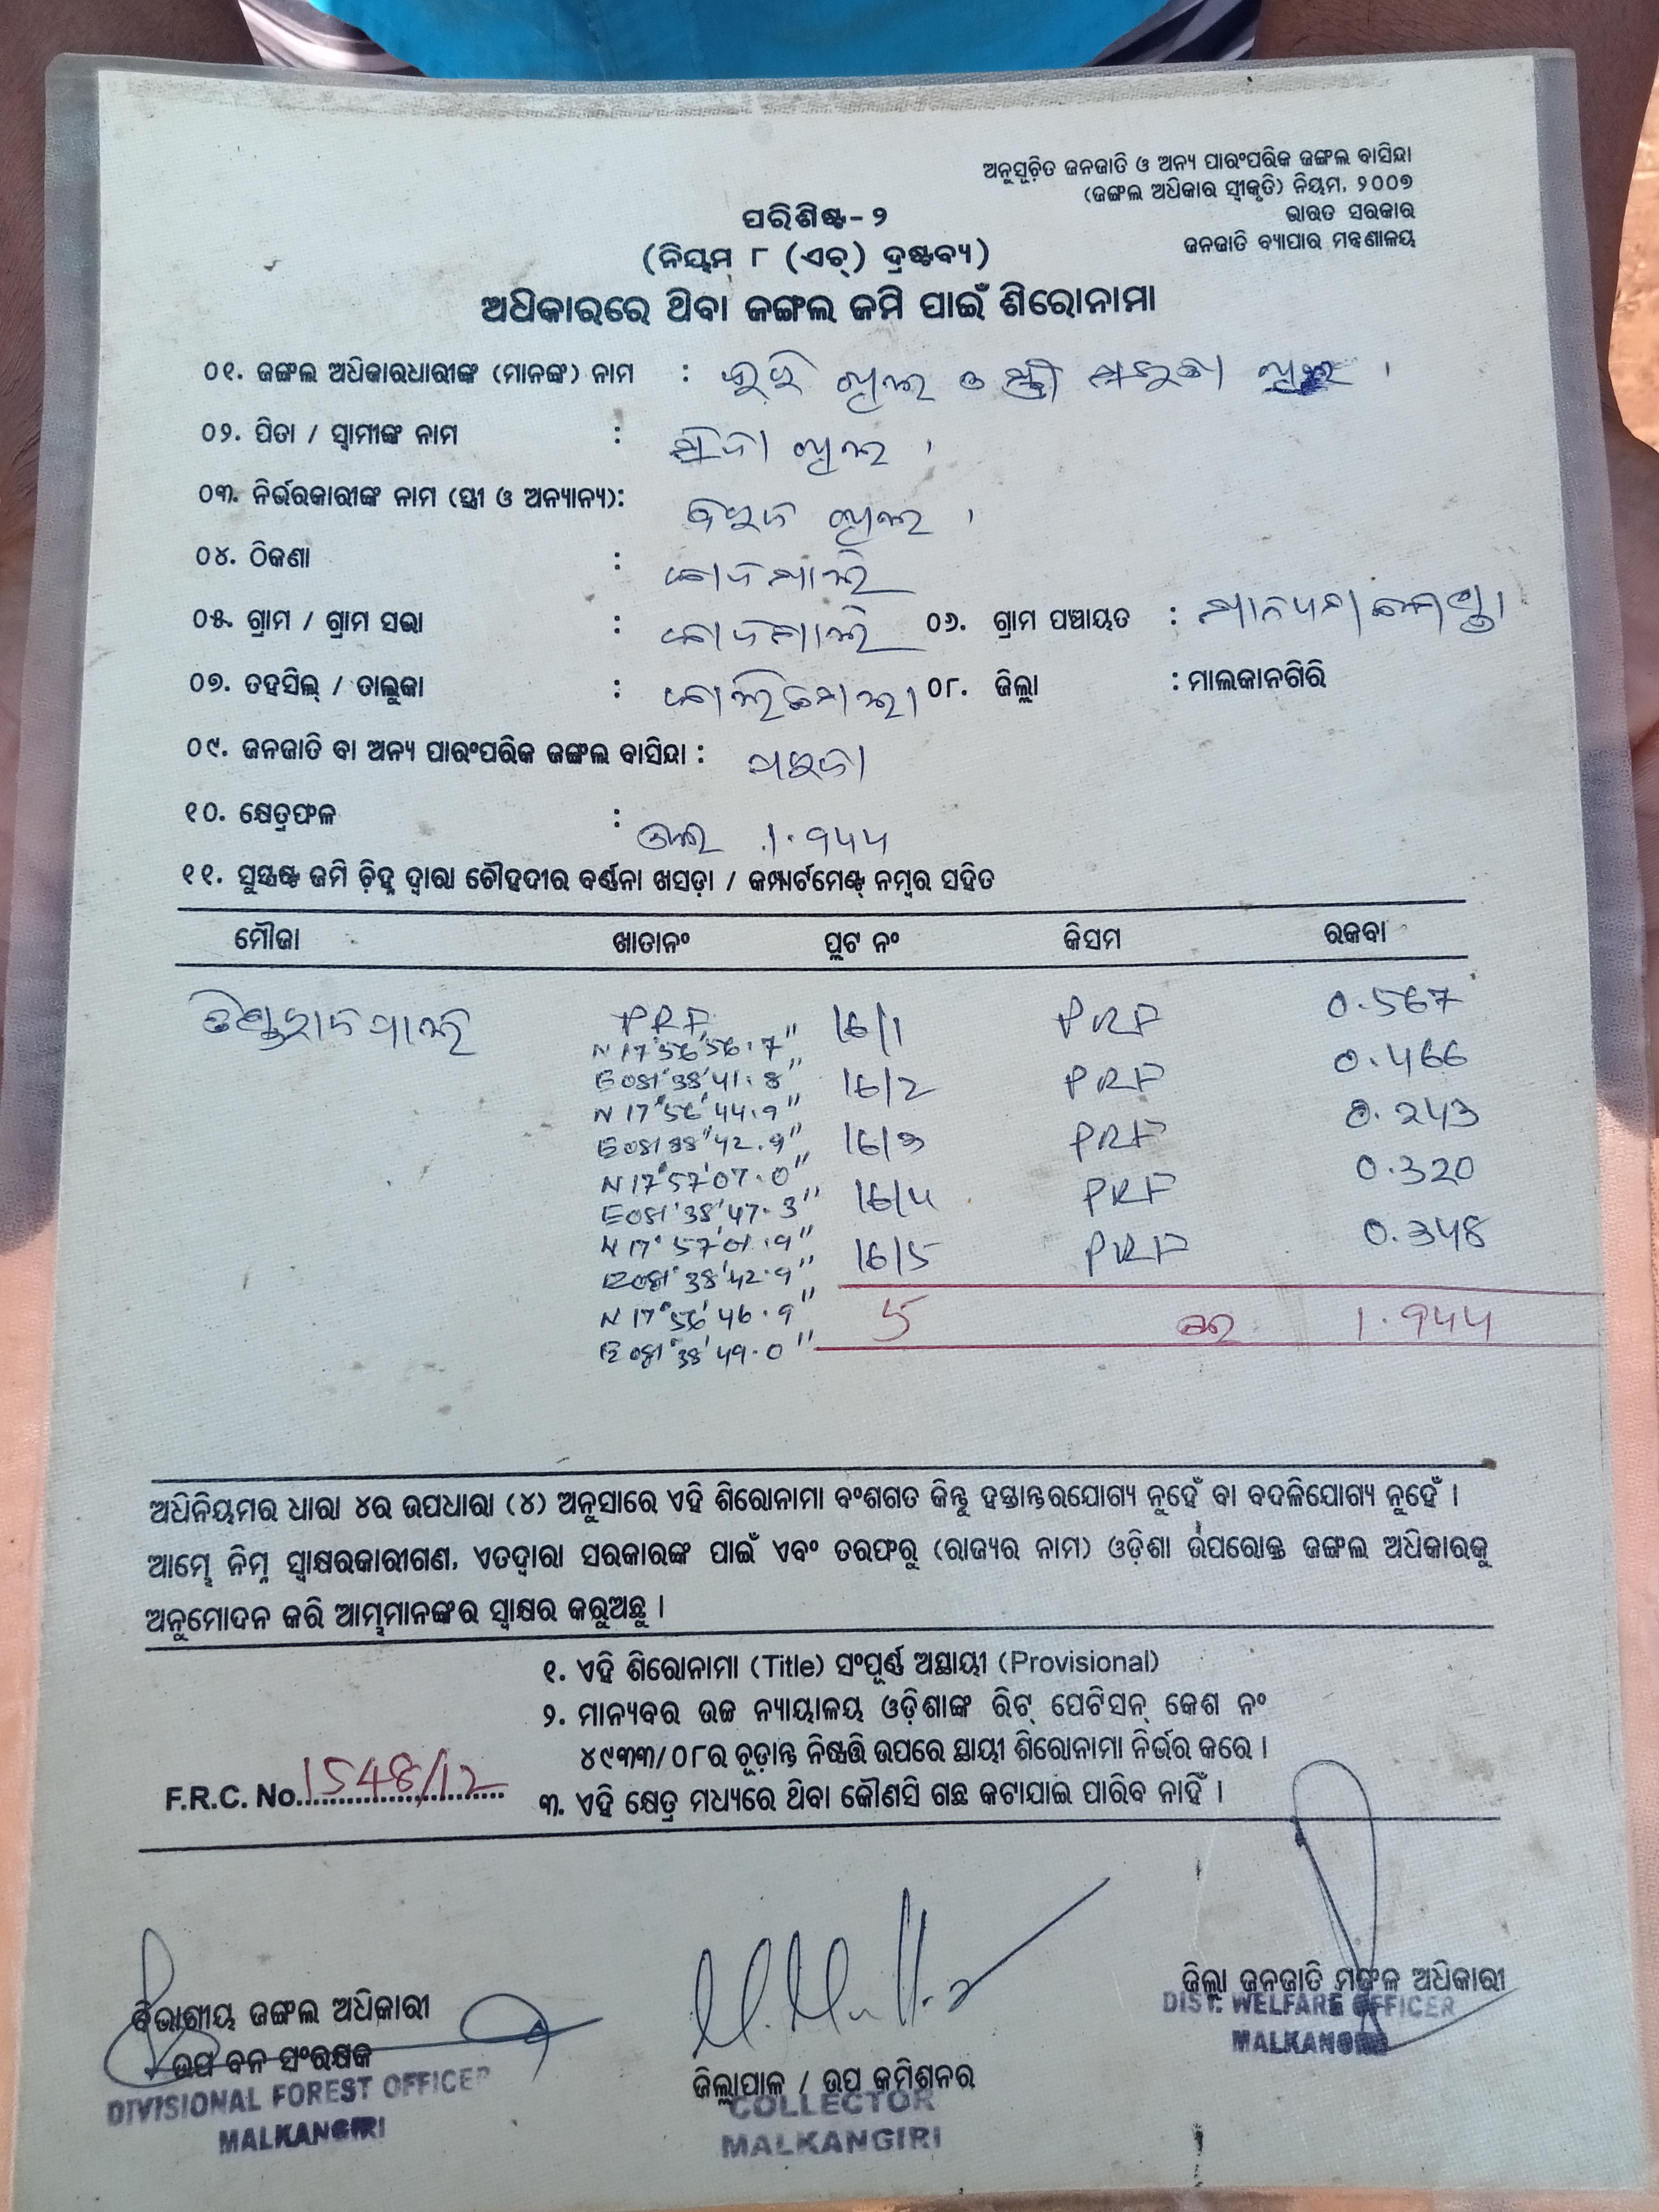 ଅନୁସୂଚିତ ଜନଜାତି ଓ ଅନ୍ୟ ପାରଂପରିକ ଜଙ୍ଗଲ ବାସିନ୍ଦା
(ଜଙ୍ଗଲ ଅଧିକାର ସ୍ୱୀକୃତି) ନିୟମ, ୨୦୦୭
ଭାରତ ସରକାର
ଜନଜାତି ବ୍ୟାପାର ମନ୍ତ୍ରଣାଳୟ
ପରିଶିଷ୍ଟ-୨
(ନିୟମ ୮ (ଏଚ୍) ଦ୍ରଷ୍ଟବ୍ୟ)
ଅଧିକାରରେ ଥିବା ଜଙ୍ଗଲ ଜମି ପାଇଁ ଶିରୋନାମା
୦୧. ଜଙ୍ଗଲ ଅଧିକାରଧାରୀଙ୍କ (ମାନଙ୍କ) ନାମ :
୦୨. ପିତା / ସ୍ୱାମୀଙ୍କ ନାମ :
୦୩. ନିର୍ଭରକାରୀଙ୍କ ନାମ (ସ୍ତ୍ରୀ ଓ ଅନ୍ୟାନ୍ୟ):
୦୪. ଠିକଣା :
୦୫. ଗ୍ରାମ / ଗ୍ରାମ ସଭା : ୦୬. ଗ୍ରାମ ପଞ୍ଚାୟତ :
୦୭. ତହସିଲ୍ / ତାଲୁକା : ୦୮. ଜିଲ୍ଲା : ମାଲକାନଗିରି
୦୯. ଜନଜାତି ବା ଅନ୍ୟ ପାରଂପରିକ ଜଙ୍ଗଲ ବାସିନ୍ଦା :
୧୦. କ୍ଷେତ୍ରଫଳ : 1.944
୧୧. ସୁସ୍ପଷ୍ଟ ଜମି ଚିହ୍ନ ଦ୍ୱାରା ଚୌହଦୀର ବର୍ଣ୍ଣନା ଖସଡ଼ା / କମ୍ପାର୍ଟମେଣ୍ଟ୍ ନମ୍ବର ସହିତ
ମୌଜା ଖାତାନଂ ପ୍ଲଟ ନଂ କିସମ ରକବା
PRF 16/1 PRF 0.567
N 17°56'56.7"
E081°38'41.8" 16/2 PRF 0.466
N 17°56'44.9"
E081°38'42.9" 16/3 PRF 0.243
N 17°57'07.0"
E081°38'47.3" 16/4 PRF 0.320
N 17°57'01.9"
E081°38'42.9" 16/5 PRF 0.348
N 17°56'46.9" 5 1.944
E081°38'49.0"
ଅଧିନିୟମର ଧାରା ୪ର ଉପଧାରା (୪) ଅନୁସାରେ ଏହି ଶିରୋନାମା ବଂଶଗତ କିନ୍ତୁ ହସ୍ତାନ୍ତରଯୋଗ୍ୟ ନୁହେଁ ବା ବଦଳିଯୋଗ୍ୟ ନୁହେଁ ।
ଆମ୍ଭେ ନିମ୍ନ ସ୍ୱାକ୍ଷରକାରୀଗଣ, ଏତଦ୍ୱାରା ସରକାରଙ୍କ ପାଇଁ ଏବଂ ତରଫରୁ (ରାଜ୍ୟର ନାମ) ଓଡ଼ିଶା ଉପରୋକ୍ତ ଜଙ୍ଗଲ ଅଧିକାରକୁ
ଅନୁମୋଦନ କରି ଆମ୍ଭମାନଙ୍କର ସ୍ୱାକ୍ଷର କରୁଅଛୁ ।
୧. ଏହି ଶିରୋନାମା (Title) ସଂପୂର୍ଣ୍ଣ ଅସ୍ଥାୟୀ (Provisional)
୨. ମାନ୍ୟବର ଉଚ୍ଚ ନ୍ୟାୟାଳୟ ଓଡ଼ିଶାଙ୍କ ରିଟ୍ ପେଟିସନ୍ କେଶ ନଂ
୪୯୩୩/୦୮ର ଚୂଡ଼ାନ୍ତ ନିଷ୍ପତ୍ତି ଉପରେ ସ୍ଥାୟୀ ଶିରୋନାମା ନିର୍ଭର କରେ ।
F.R.C. No. 1548/12
୩. ଏହି କ୍ଷେତ୍ର ମଧ୍ୟରେ ଥିବା କୌଣସି ଗଛ କଟାଯାଇ ପାରିବ ନାହିଁ ।
ବିଭାଗୀୟ ଜଙ୍ଗଲ ଅଧିକାରୀ
ଉପ ବନ ସଂରକ୍ଷକ
DIVISIONAL FOREST OFFICER
MALKANGIRI
ଜିଲ୍ଲାପାଳ / ଉପ କମିଶନର
COLLECTOR
MALKANGIRI
ଜିଲ୍ଲା ଜନଜାତି ମଙ୍ଗଳ ଅଧିକାରୀ
DIST. WELFARE OFFICER
MALKANGIRI